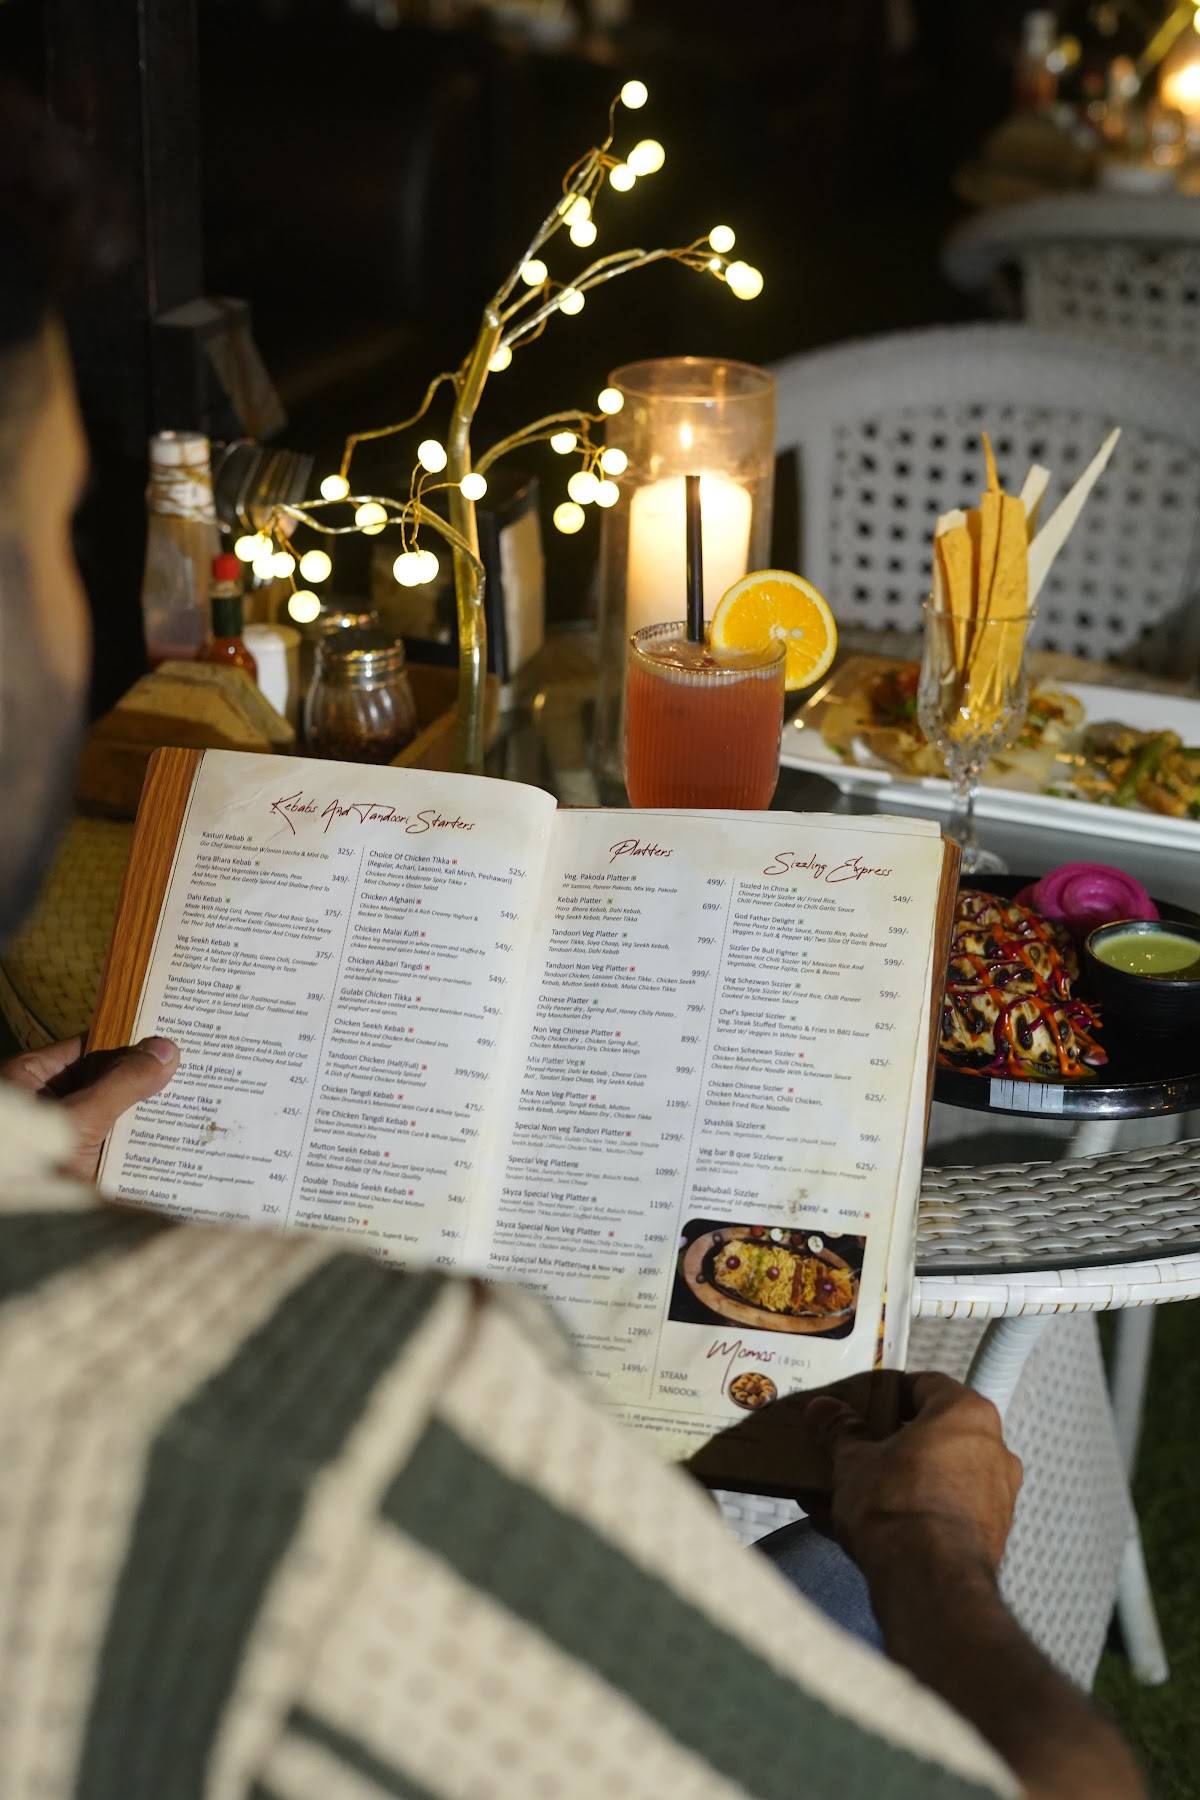 Kebabs And Tandoori Starters
Kasturi Kebab
Our Chef Special Kebab W/onion Laccha & Mint Dip 325/-
Hara Bhara Kebab
Finely Minced Vegetables Like Potato, Peas 349/-
And More That Are Gently Spiced And Shallow fried To
Perfection
Dahi Kebab
Made With Hung Curd, Paneer, Flour And Basic Spice 375/-
Powders, And Red yellow Exotic Capsicums Loved by Many
For Their Soft Mel-in mouth Interior And Crispy Exterior
Veg Seekh Kebab
Made From A Mixture Of Potato, Green Chilli, Coriander 375/-
And Ginger, A Tad Bit Spicy But Amazing in Taste
And Delight For Every Vegetation
Tandoori Soya Chaap
Soya Chaap Marinated With Our Traditional Indian 399/-
Spices And Yogurt, It is Served With Our Traditional Mint
Chutney And Vinegar Onion Salad
Malai Soya Chaap
Soy Chunks Marinated With Rich Creamy Masala, 399/-
Tandoor, Mixed With Veggies And A Dash Of Chat
Butter. Served With Green Chutney And Salad
Stick (4 piece)
425/-
of Paneer Tikka
Lahsuni, Achari, Malai) 425/-
Marinated Paneer Cooked in
Tandoor Served W/salad &
Pudina Paneer Tikka
paneer marinated in mint and yoghurt cooked in tandoor 425/-
Sufiana Paneer Tikka
paneer marinated in yoghurt and fenugreek powder 449/-
and spices and baked in tandoor
Tandoori Aaloo
325/-
Choice Of Chicken Tikka
(Regular, Achari, Lasooni, Kali Mirch, Peshawari) 525/-
Chicken Pieces Moderate Spicy Tikka +
Mint Chutney + Onion Salad
Chicken Afghani
Chicken Marinated in A Rich Creamy Yoghurt & 549/-
Backed in Tandoor
Chicken Malai Kulfi
chicken leg marinated in white cream and stuffed by 549/-
chicken keema and spices baked in tandoor
Chicken Akbari Tangdi
chicken full leg marinated in red spicy marination 549/-
and baked in tandoor
Gulabi Chicken Tikka
Marinated chicken coated with pureed beetroot mixture 549/-
and yoghurt and spices
Chicken Seekh Kebab
Skewered Minced Chicken Roll Cooked Into 499/-
Perfection in A andloor
Tandoori Chicken (Half/Full)
in Youghrt And Generously Spiced 399/599/-
A Dish of Roasted Chicken Marinated
Chicken Tangdi Kebab
Chicken Drumstick's Marinated With Curd & Whole Spices 475/-
Fire Chicken Tangdi Kebab
Chicken Drumstick's Marinated With Curd & Whole Spices 499/-
Served With Alcohol Fire
Mutton Seekh Kebab
Zestful, Fresh Green Chilli And Secret Spice Infused, 475/-
Mutton Mince Kebab Of The Finest Quality
Double Trouble Seekh Kebab
Kebab Made With Minced Chicken And Mutton 549/-
That's Seasoned With Spices
Junglee Maans Dry
549/-
475/-
Platters
Veg. Pakoda Platter 499/-
PP Samosa, Paneer Pakoda, Mix Veg. Pakoda
Kebab Platter 699/-
Hara Bhara Kebab, Dahi Kebab,
Veg Seekh Kebab, Paneer Tikka
Tandoori Veg Platter 799/-
Paneer Tikka, Soya Chaap, Veg Seekh Kebab,
Tandoori Aloo, Dahi Kebab
Tandoori Non Veg Platter 999/-
Tandoori Chicken, Lasooni Chicken Tikka, Chicken Seekh
Kebab, Mutton Seekh Kebab, Malai Chicken Tikka
Chinese Platter 799/-
Chilly Paneer dry, Spring Roll, Honey Chilly Potato,
Veg Manchurian Dry
Non Veg Chinese Platter 899/-
Chilly Chicken dry, Chicken Spring Roll,
Chicken Manchurian Dry, Chicken Wings
Mix Platter Veg 999/-
Thread Paneer, Dahi ke Kebab, Cheese Corn
Ball, Tandoori Soya Chaap, Veg Seekh Kebab
Mix Non Veg Platter 1199/-
Chicken Lollypop, Tangdi Kebab, Mutton
Seekh Kebab, Junglee Maans Dry, Chicken Tikka
Special Non veg Tandori Platter 1299/-
Special Veg Platter 1099/-
Skyza Special Veg Platter 1199/-
Skyza Special Non Veg Platter 1499/-
Skyza Special Mix Platter(veg & Non Veg) 1499/-
Choice of 3 veg and 3 non veg dish from starter
899/-
1299/-
1499/-
Sizzling Express
Sizzled in China 549/-
Chinese Style Sizzler W/ Fried Rice,
Chilli Paneer Cooked in Chilli Garlic Sauce
God Father Delight 599/-
Penne Pasta in White Sauce, Risoto Rice, Boiled
Veggies in Salt & Pepper W/ Two Slice Of Garlic Bread
Sizzler De Bull Fighter 599/-
Mexican Hot Chilli Sizzler W/ Mexican Rice And
Vegetable, Cheese Fajita, Corn & Beans
Veg Schezwan Sizzler 599/-
Chinese Style Sizzler W/ Fried Rice, Chilli Paneer
Cooked in Schezwan Sauce
Chef's Special Sizzler 625/-
Veg. Steak Stuffed Tomato & Fries in BBQ Sauce
Served W/ Veggies in White Sauce
Chicken Schezwan Sizzler 625/-
Chicken Munchurian, Chilli Chicken,
Chicken Fried Rice Noodle With Schezwan Sauce
Chicken Chinese Sizzler 625/-
Chicken Manchurian, Chilli Chicken,
Chicken Fried Rice Noodle
Shashlik Sizzler 599/-
Rice. Exotic Vegetables, Paneer with Shaslik Sauce
Veg bar B que Sizzler 625/-
Exotic vegetable Aloo Patty, Baby Corn, Fresh Beans Pineapple
with BBQ Sauce
Baahubali Sizzler 3499/- 4499/-
Combination of 10 different
from all section
Momos ( 8 pcs )
STEAM
TANDOOR
veg.